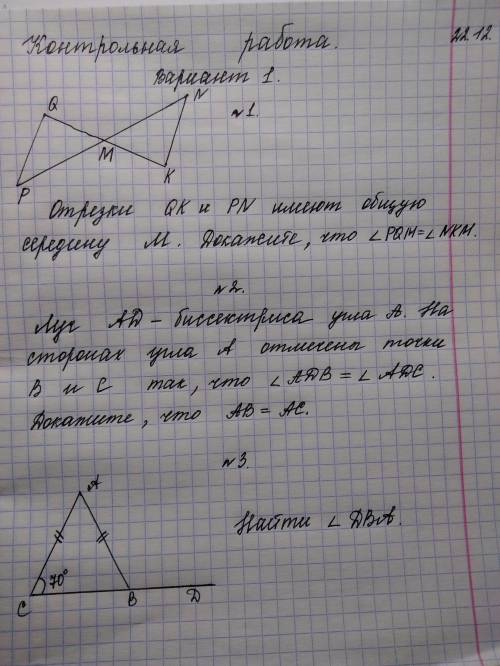 Контрольная работа. 22.12
Вариант 1.
№1.
Q N
M
P K
Отрезки QK и PN имеют общую
середину M. Докажите, что ∠PQM=∠NKM.
№2.
Луч AD – биссектриса угла A. На
сторонах угла A отмечены точки
B и C так, что ∠ADB = ∠ADC.
Докажите, что AB = AC.
№3.
A
Найти ∠DBA.
70°
C B D